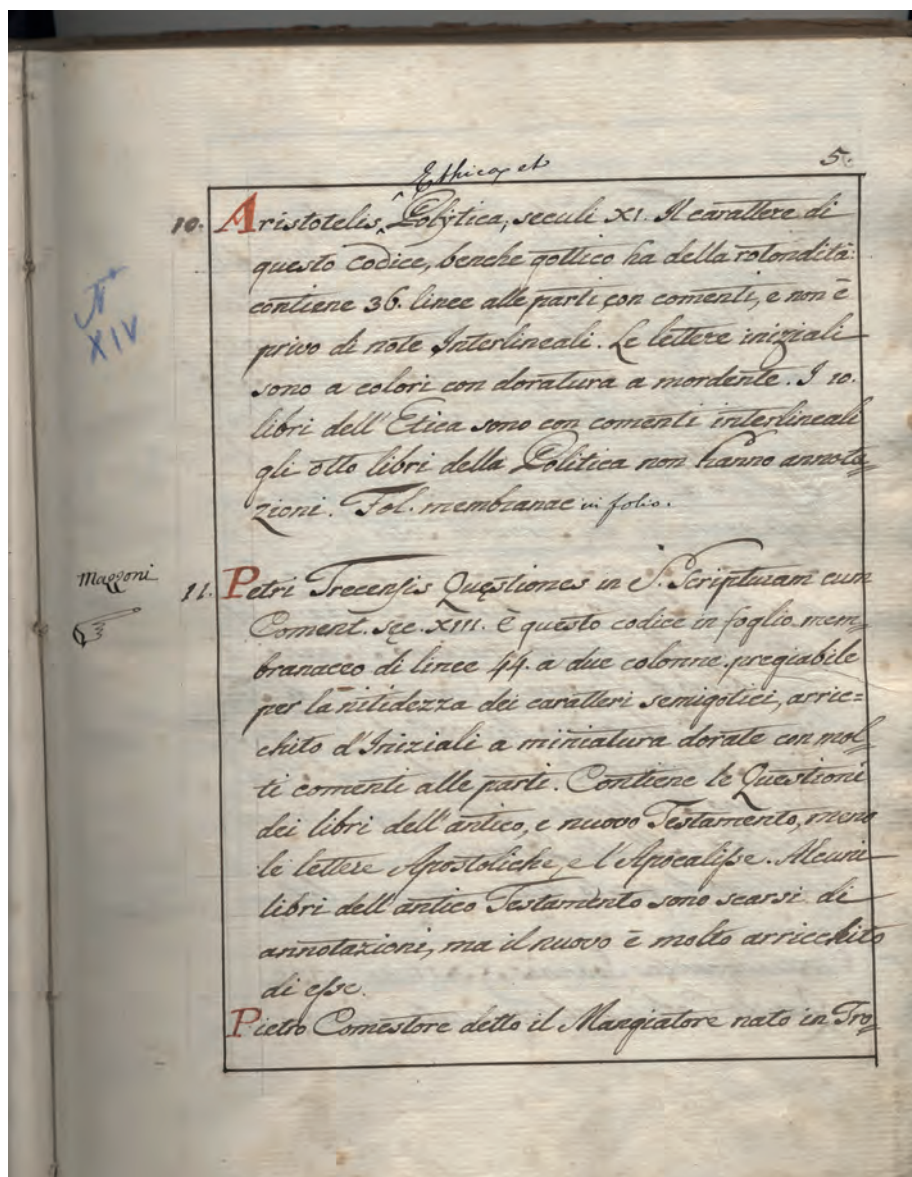 5.
Ethica et
10. Aristotelis, Polÿtica, seculi XI. Il carattere di
questo codice, benche gottico ha della rotondità:
contiene 36. linee alle parti con comenti, e non è
privo di note Interlineali. Le lettere iniziali
sono a colori con doratura a mordente. I 10.
libri dell' Etica sono con comenti interlineali
gli otto libri della Politica non hanno annota=
zioni. Fol. membranac in folio.
N°
XIV
Mazzoni
11. Petri Trecensis Questiones in S. Scripturam cum
Coment. sęc. XIII. è questo codice in foglio mem=
branaceo di linee 44. a due colonne pregiabile
per la nitidezza dei caratteri semigotici, arric=
chito d'Iniziali a miniatura dorate con mol=
ti comenti alle parti. Contiene le Questioni
dei libri dell' antico, e nuovo Testamento, meno
le lettere Apostoliche, e l'Apocalisse. Alcuni
libri dell' antico Testamento sono scarsi di
annotazioni, ma il nuovo è molto arricchito
di esse.
Pietro Comestore detto il Mangiatore nato in Tro=